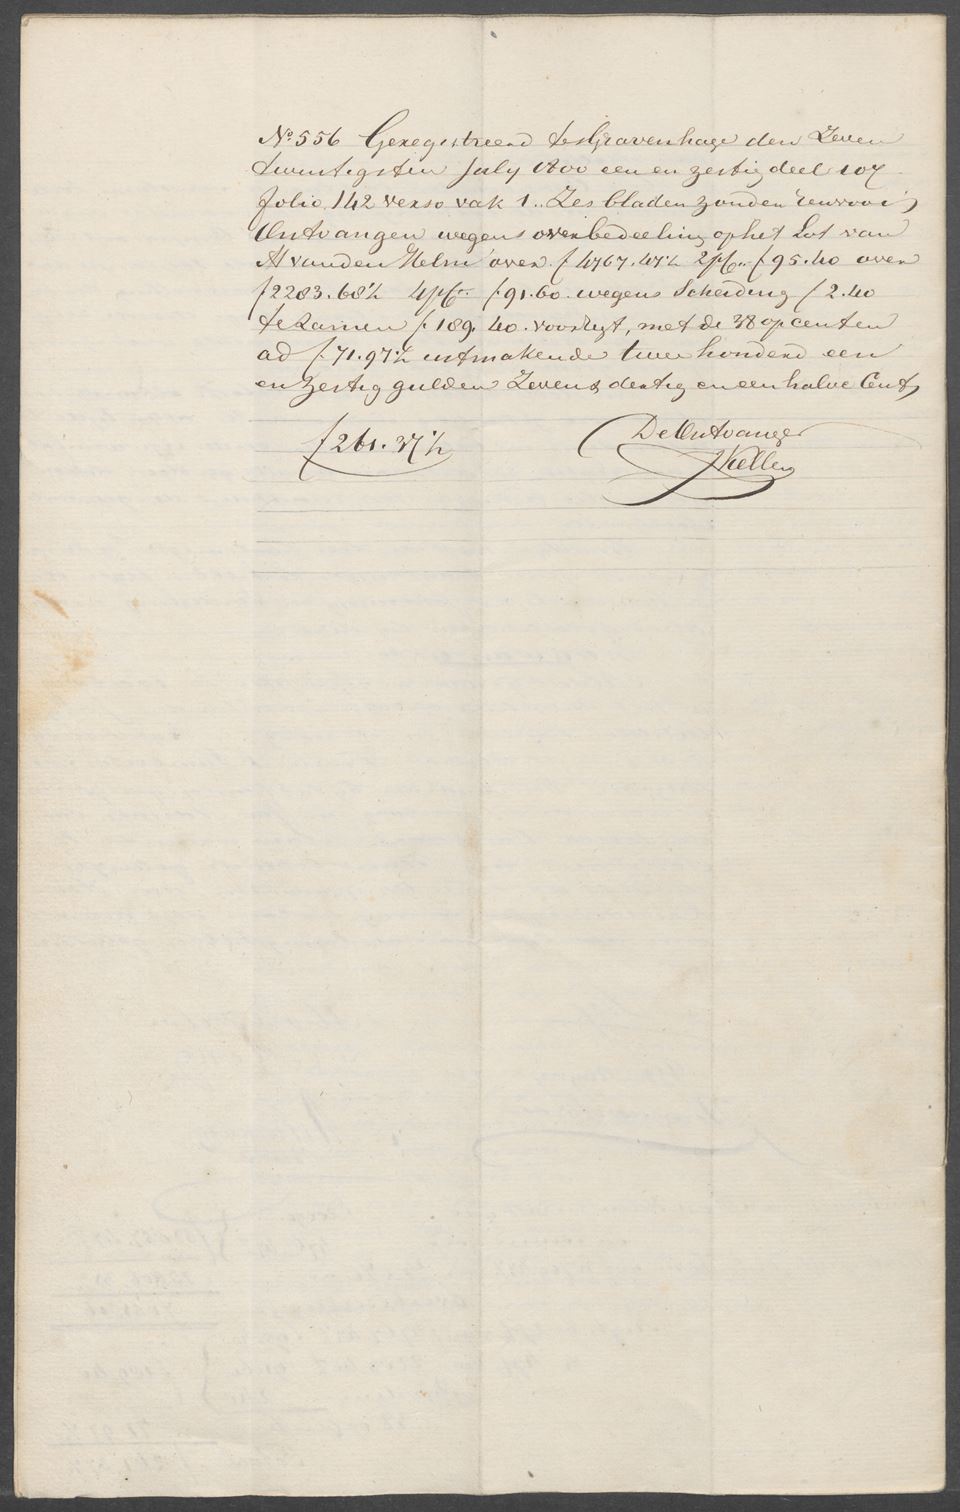 No 556 Geregistreerd te sGravenhage den Zeven
twintigsten July 1800 een en zestig deel 107
folio 142 verso vak 1. Zes bladen zonder renvooi
Ontvangen wegens overbedeeling op het Lot van
A vanden Helm over f 4767.47½ 2 pCt f 95.40 over
f 2283.68½ 4 pCt f 91.60. wegens Scheiding f 2.40
te zamen f 189.40. voorsegt, met de 38 opcenten
ad f 71.97½ uitmakende twee honderd een
en zestig gulden Zeven & dertig en een halve Cent
f 261.37½
De Ontvanger